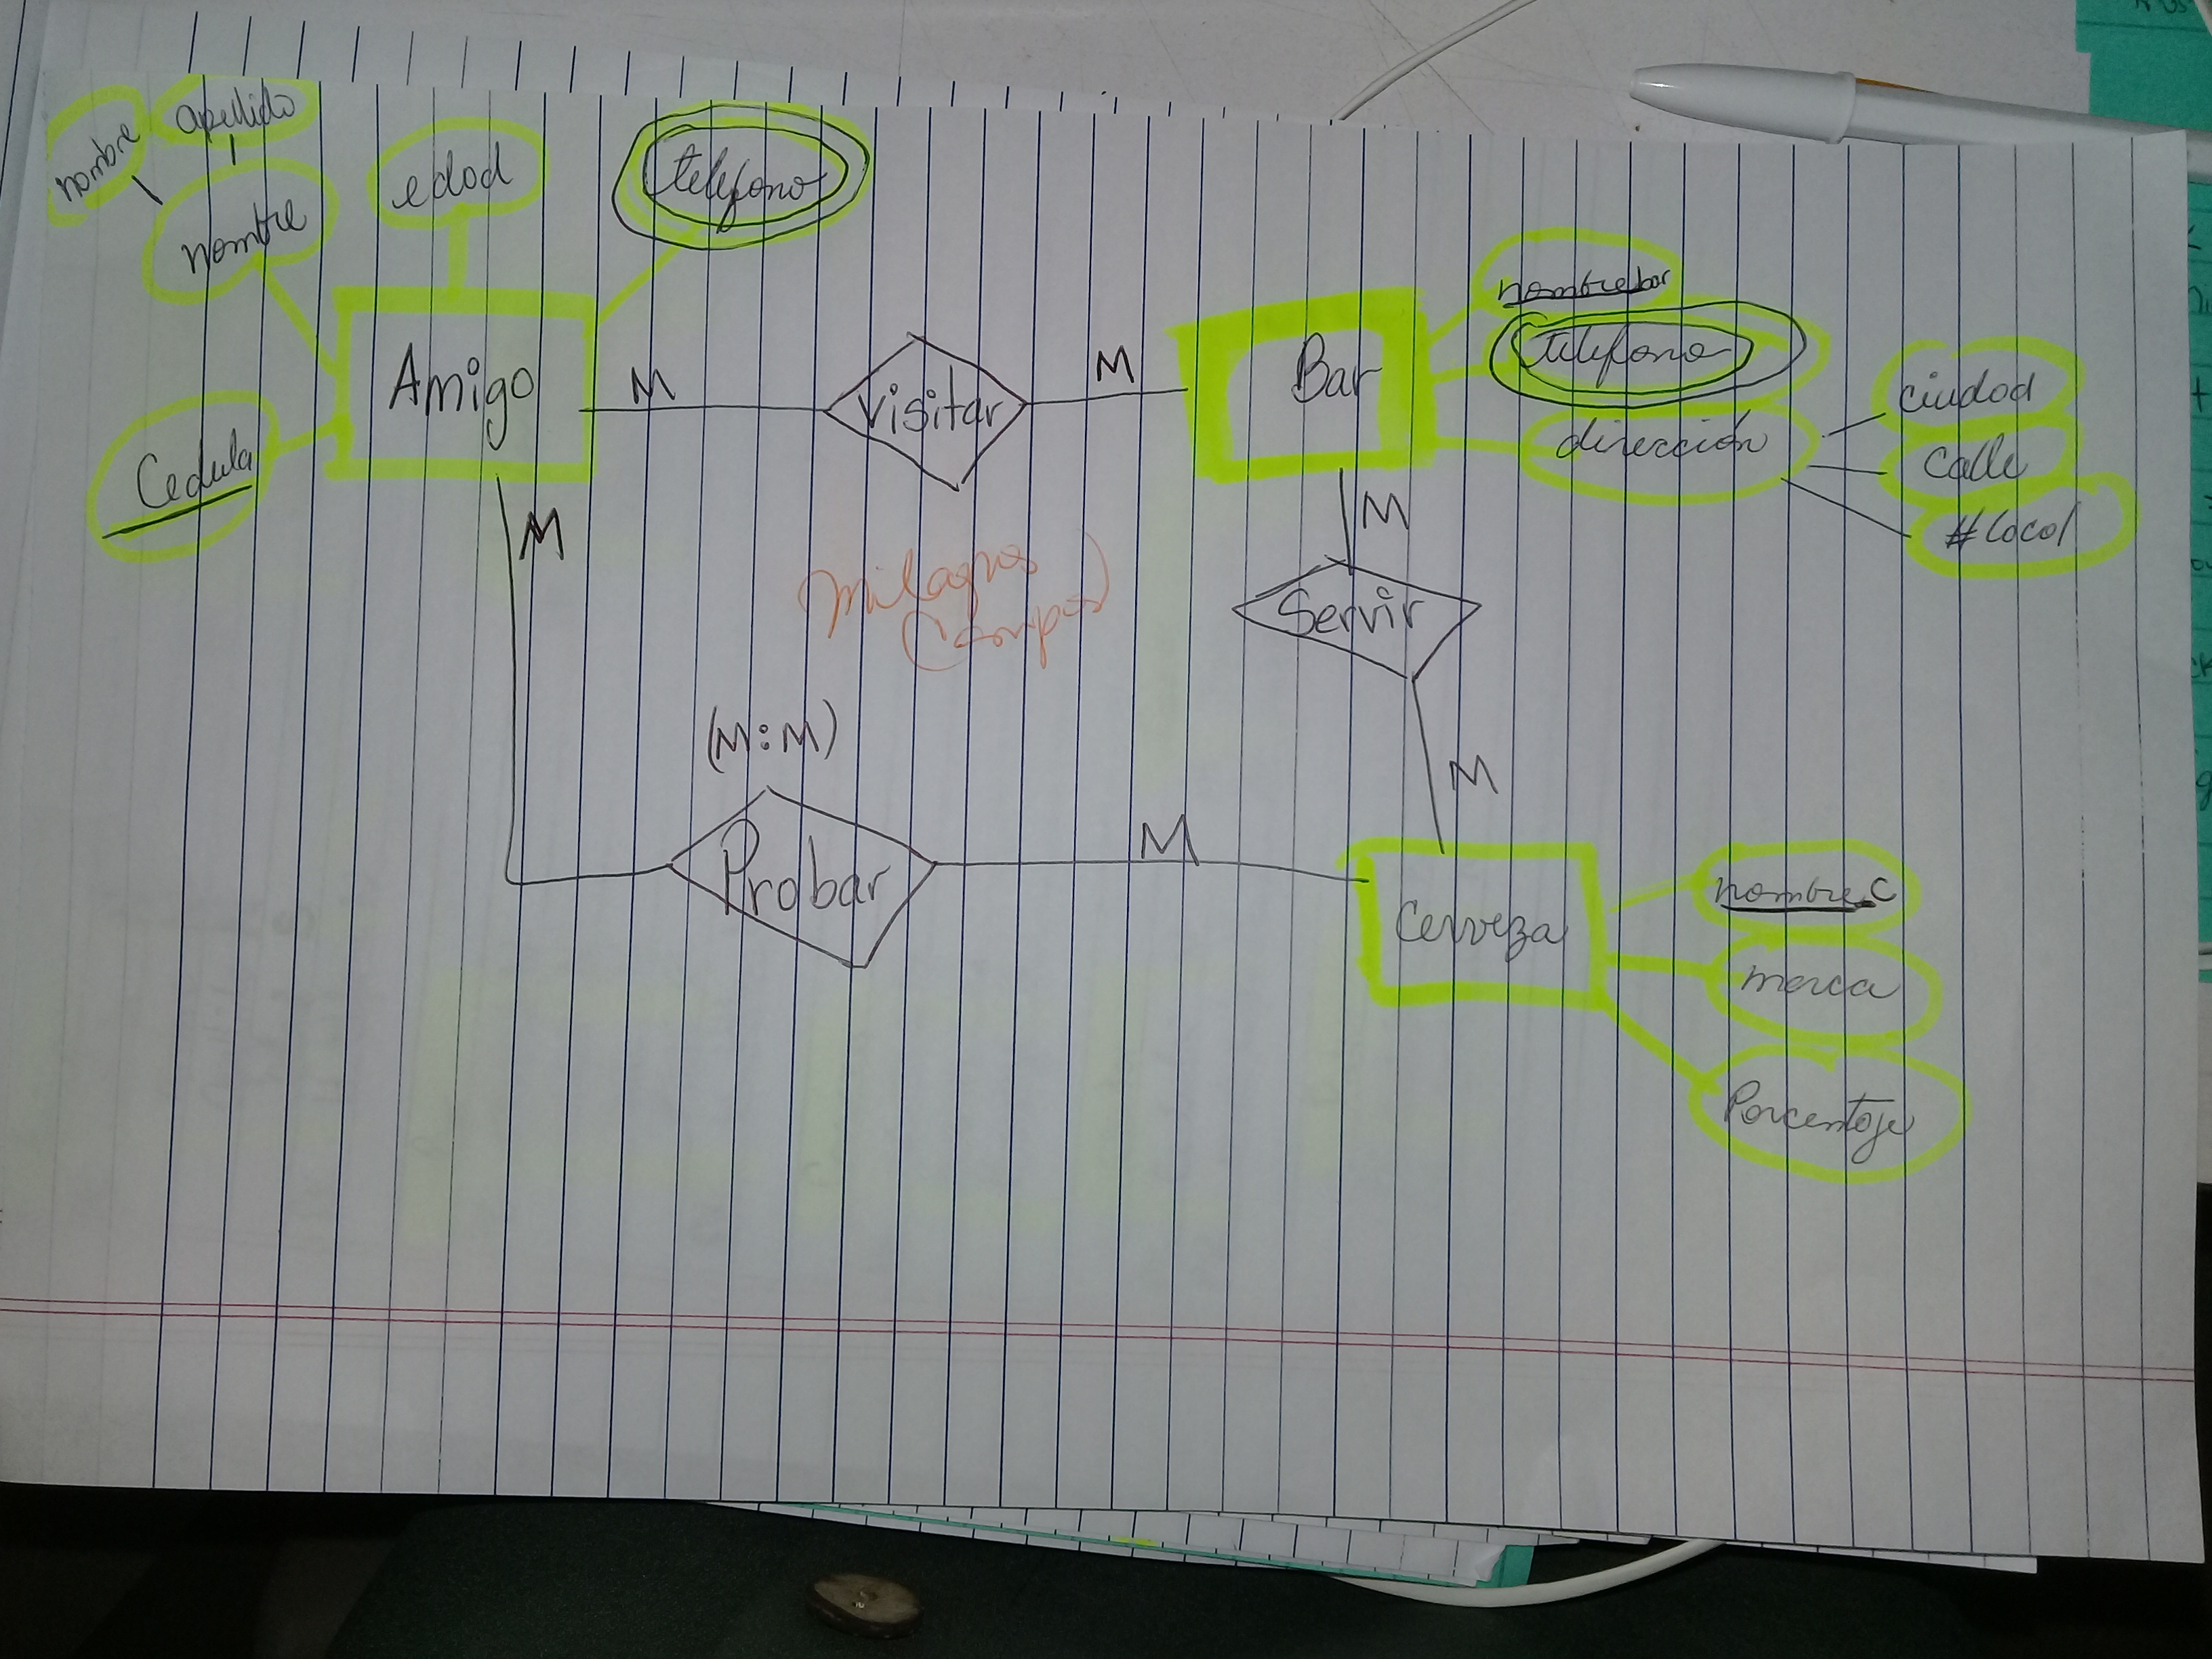 nombre
apellido
nombre
edad
telefono
Cedula
Amigo
M
Visitar
M
Bar
nombrebar
telefono
dirección
ciudad
Calle
#local
M
M
Servir
Milagros
Campos
M
(M:M)
Probar
M
Cerveza
nombre_C
marca
Porcentaje